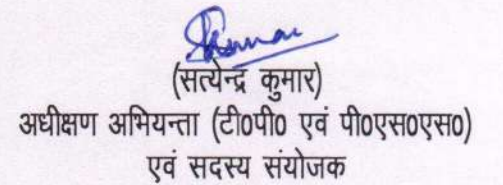 (सत्येन्द्र कुमार)
अधीक्षण अभियन्ता (टी०पी० एवं पी०एस०एस०)
एवं सदस्य संयोजक